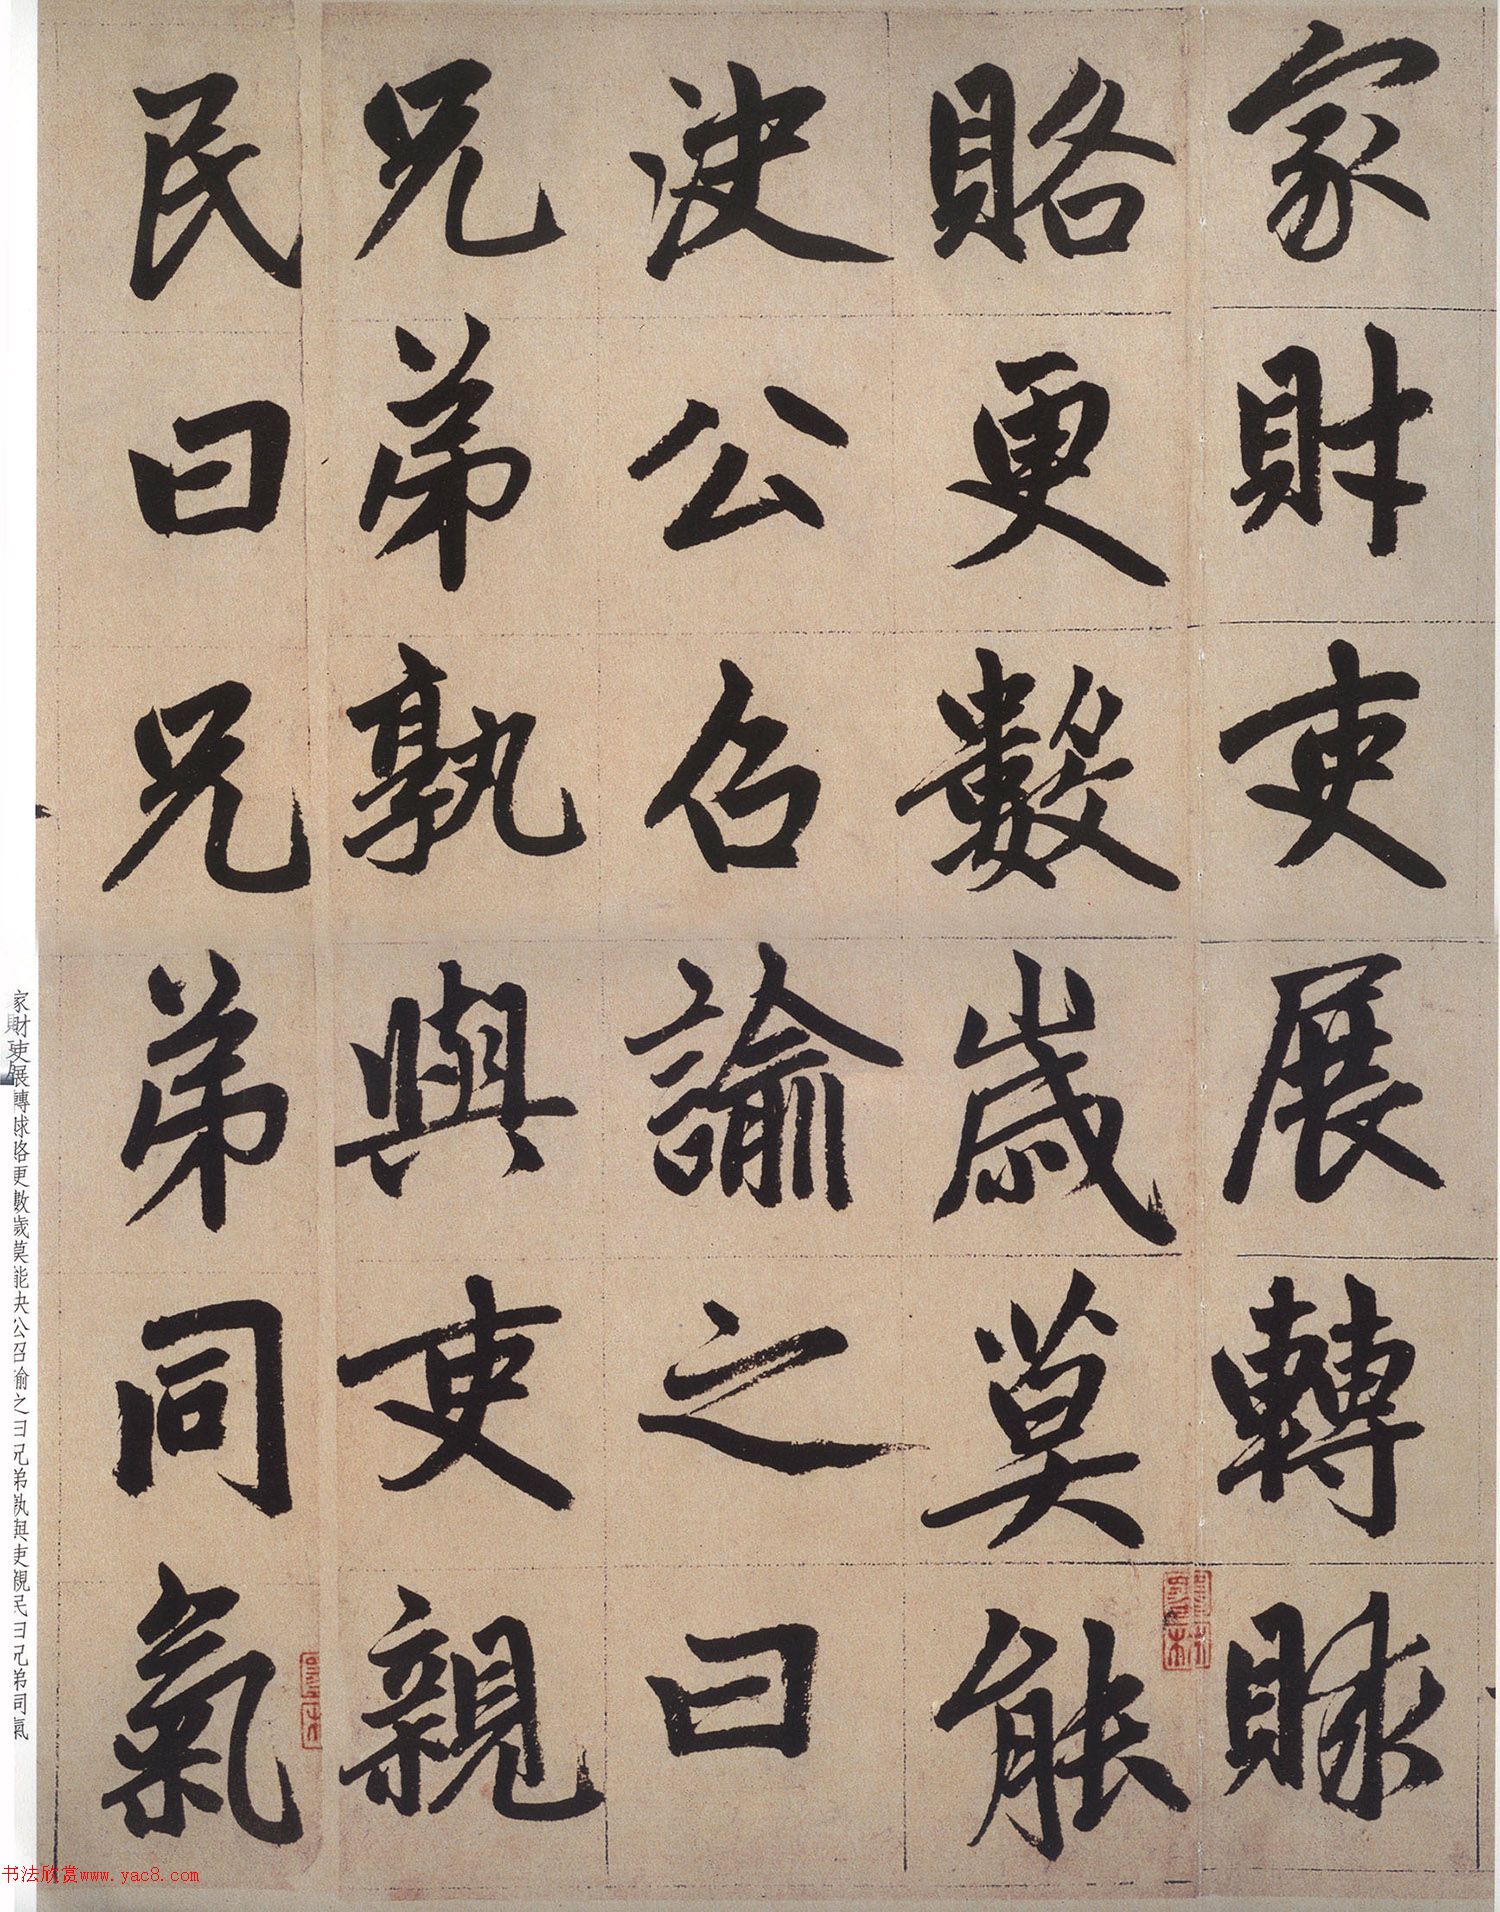 家財吏展轉賕
賂更數歲莫能
決公召諭之曰
兄弟孰與吏親
民曰兄弟同氣
家財吏展轉賕賂更數歲莫能決公召諭之曰兄弟孰與吏親民曰兄弟同氣
书法欣赏www.yac8.com